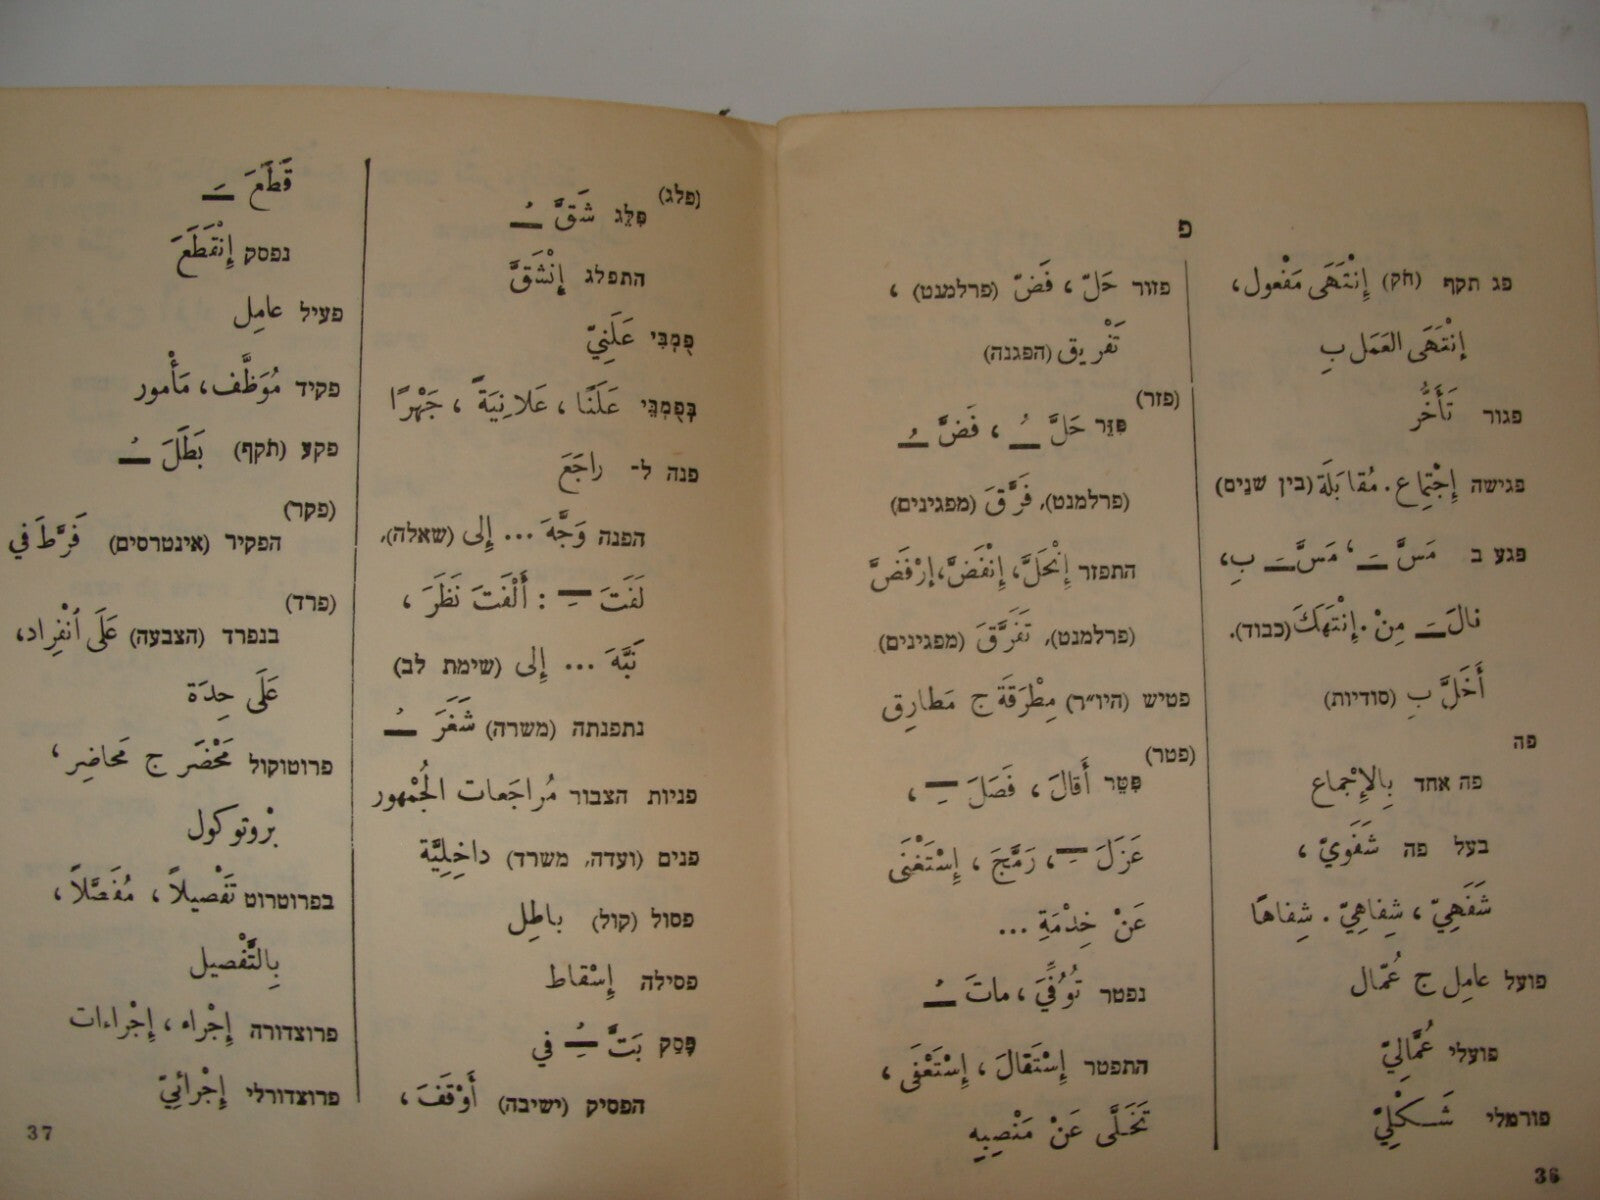 פ
פג תקף (חק) إِنْتَهَى مَفْعول،
إِنْتَهَى العَمَل بِ
פגור تَأَخُّر
פגישה إِجْتِماع. مُقابَلَة (בין שנים)
פגע ב مَسَّ ــَـ، مَسَّ ــَـ بِ،
نالَ ــَـ مِنْ. إِنْتَهَكَ (כבוד).
أَخَلَّ بِ (סודיות)
פה
פה אחד بِالإِجْماع
בעל פה شَفَوِيّ،
شَفَهِيّ، شِفاهِيّ. شِفاهًا
פועל عامِل ج عُمّال
פועלי عُمَّالِيّ
פורמלי شَكْلِيّ
פזור حَلّ، فَضّ (פרלמנט)،
تَفْريق (הפגנה)
(פזר)
פִּזֵּר حَلَّ ــُـ، فَضَّ ــُـ
(פרלמנט), فَرَّقَ (מפגינים)
התפזר إِنْحَلَّ، إِنْفَضَّ، إِرْفَضَّ
(פרלמנט), تَفَرَّقَ (מפגינים)
פטיש (היו״ר) مِطْرَقَة ج مَطارِق
(פטר)
פִּטֵּר أَقالَ، فَصَلَ ــِـ،
عَزَلَ ــِـ، رَمَّجَ، إِسْتَغْنَى
عَنْ خِدْمَةِ ...
נפטר تُوُفِّيَ، ماتَ ــُـ
התפטר إِسْتَقالَ، إِسْتَعْفَى،
تَخَلَّى عَنْ مَنْصِبِهِ
36
(פלג)
פִּלֵּג شَقَّ ــُـ
התפלג إِنْشَقَّ
פֻּמְבִּי عَلَنِيّ
בְּפֻמְבֵּי عَلَنًا، عَلانِيَةً، جَهْرًا
פנה ל- راجَعَ
הפנה وَجَّهَ ... إِلى (שאלה),
لَفَتَ ــِـ : أَلْفَتَ نَظَرَ،
نَبَّهَ ... إِلى (שימת לב)
נתפנתה (משרה) شَغَرَ ــُـ
פניות הצבור مُراجَعات الجُمْهور
פנים (ועדה, משרד) داخِلِيَّة
פסול (קול) باطِل
פסילה إِسْقاط
פָּסַק بَتَّ ــُِـ في
הפסיק (ישיבה) أَوْقَفَ،
قَطَعَ ــَـ
נפסק إِنْقَطَعَ
פעיל عامِل
פקיד مُوَظَّف، مَأْمور
פקע (תקף) بَطَلَ ــُـ
(פקר)
הפקיר (אינטרסים) فَرَّطَ في
(פרד)
בנפרד (הצבעה) عَلَى أنْفِراد،
عَلَى حِدَة
פרוטוקול مَحْضَر ج مَحاضِر،
بْروتوكول
בפרוטרוט تَفْصيلاً، مُفَصَّلاً،
بِالتَّفْصيل
פרוצדורה إِجْراء، إِجْراءات
פרוצדורלי إِجْرائِيّ
37